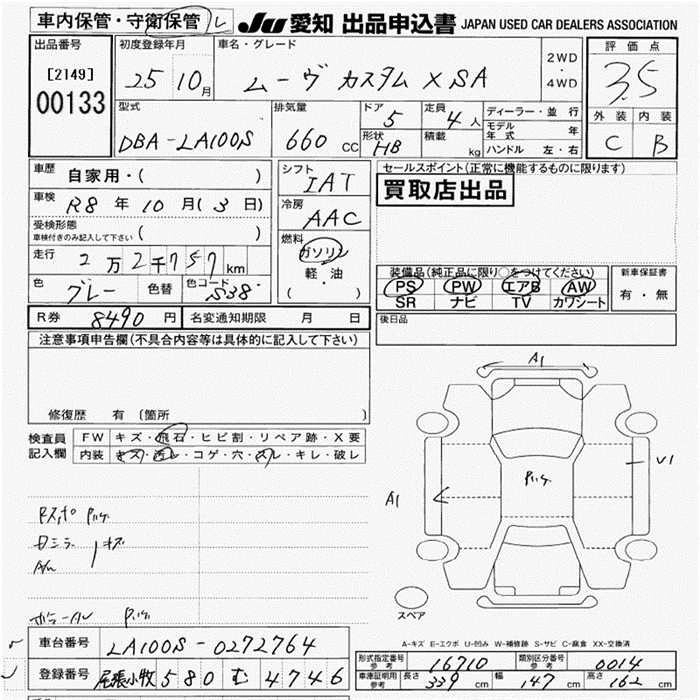 車内保管・守衛保管 し
JU 愛知 出品申込書 JAPAN USED CAR DEALERS ASSOCIATION
出品番号 初度登録年月 車名・グレード 評価点
[2149] 25 10月 ムーヴ カスタム X SA 2WD・4WD 3.5
00133
型式 排気量 ドア 5 定員 4人 ディーラー・並行 外装 内装
DBA-LA100S 660 CC 形状 HB 積載 kg モデル年式 年 C B
ハンドル 左・右
車歴 自家用・( ) シフト IAT セールスポイント(正常に機能するものに限ります)
車検 R8年10月(3日) 冷房 AAC 買取店出品
受検形態
車検付きのみ記入して下さい ( ) 燃料
走行 2万2千757km ガソリン
軽・油
(・) 装備品(純正品に限り○をつけてください) 新車保証書
色 グレー 色替 色コード S38 PS PW エアB AW 有・無
SR ナビ TV カワシート
R券 8490円 名変通知期限 月 日 後日品
注意事項申告欄(不具合内容等は具体的に記入して下さい)
修復歴 有 (箇所 )
検査員記入欄 FW キズ・飛石・ヒビ割・リペア跡・X要
内装 キズ・汚レ・コゲ・穴・スレ・キレ・破レ
A1
V1
A1
スペア
A-キズ E-エクボ U-凹み W-補修跡 S-サビ C-腐食 XX-交換済
車台番号 LA100S-0272764
登録番号 尾張小牧 580 む 4746
形式指定番号 参考 16710 類別区分番号 参考 0014
車庫証明用 参考 長さ 339 cm 幅 147 cm 高さ 162 cm